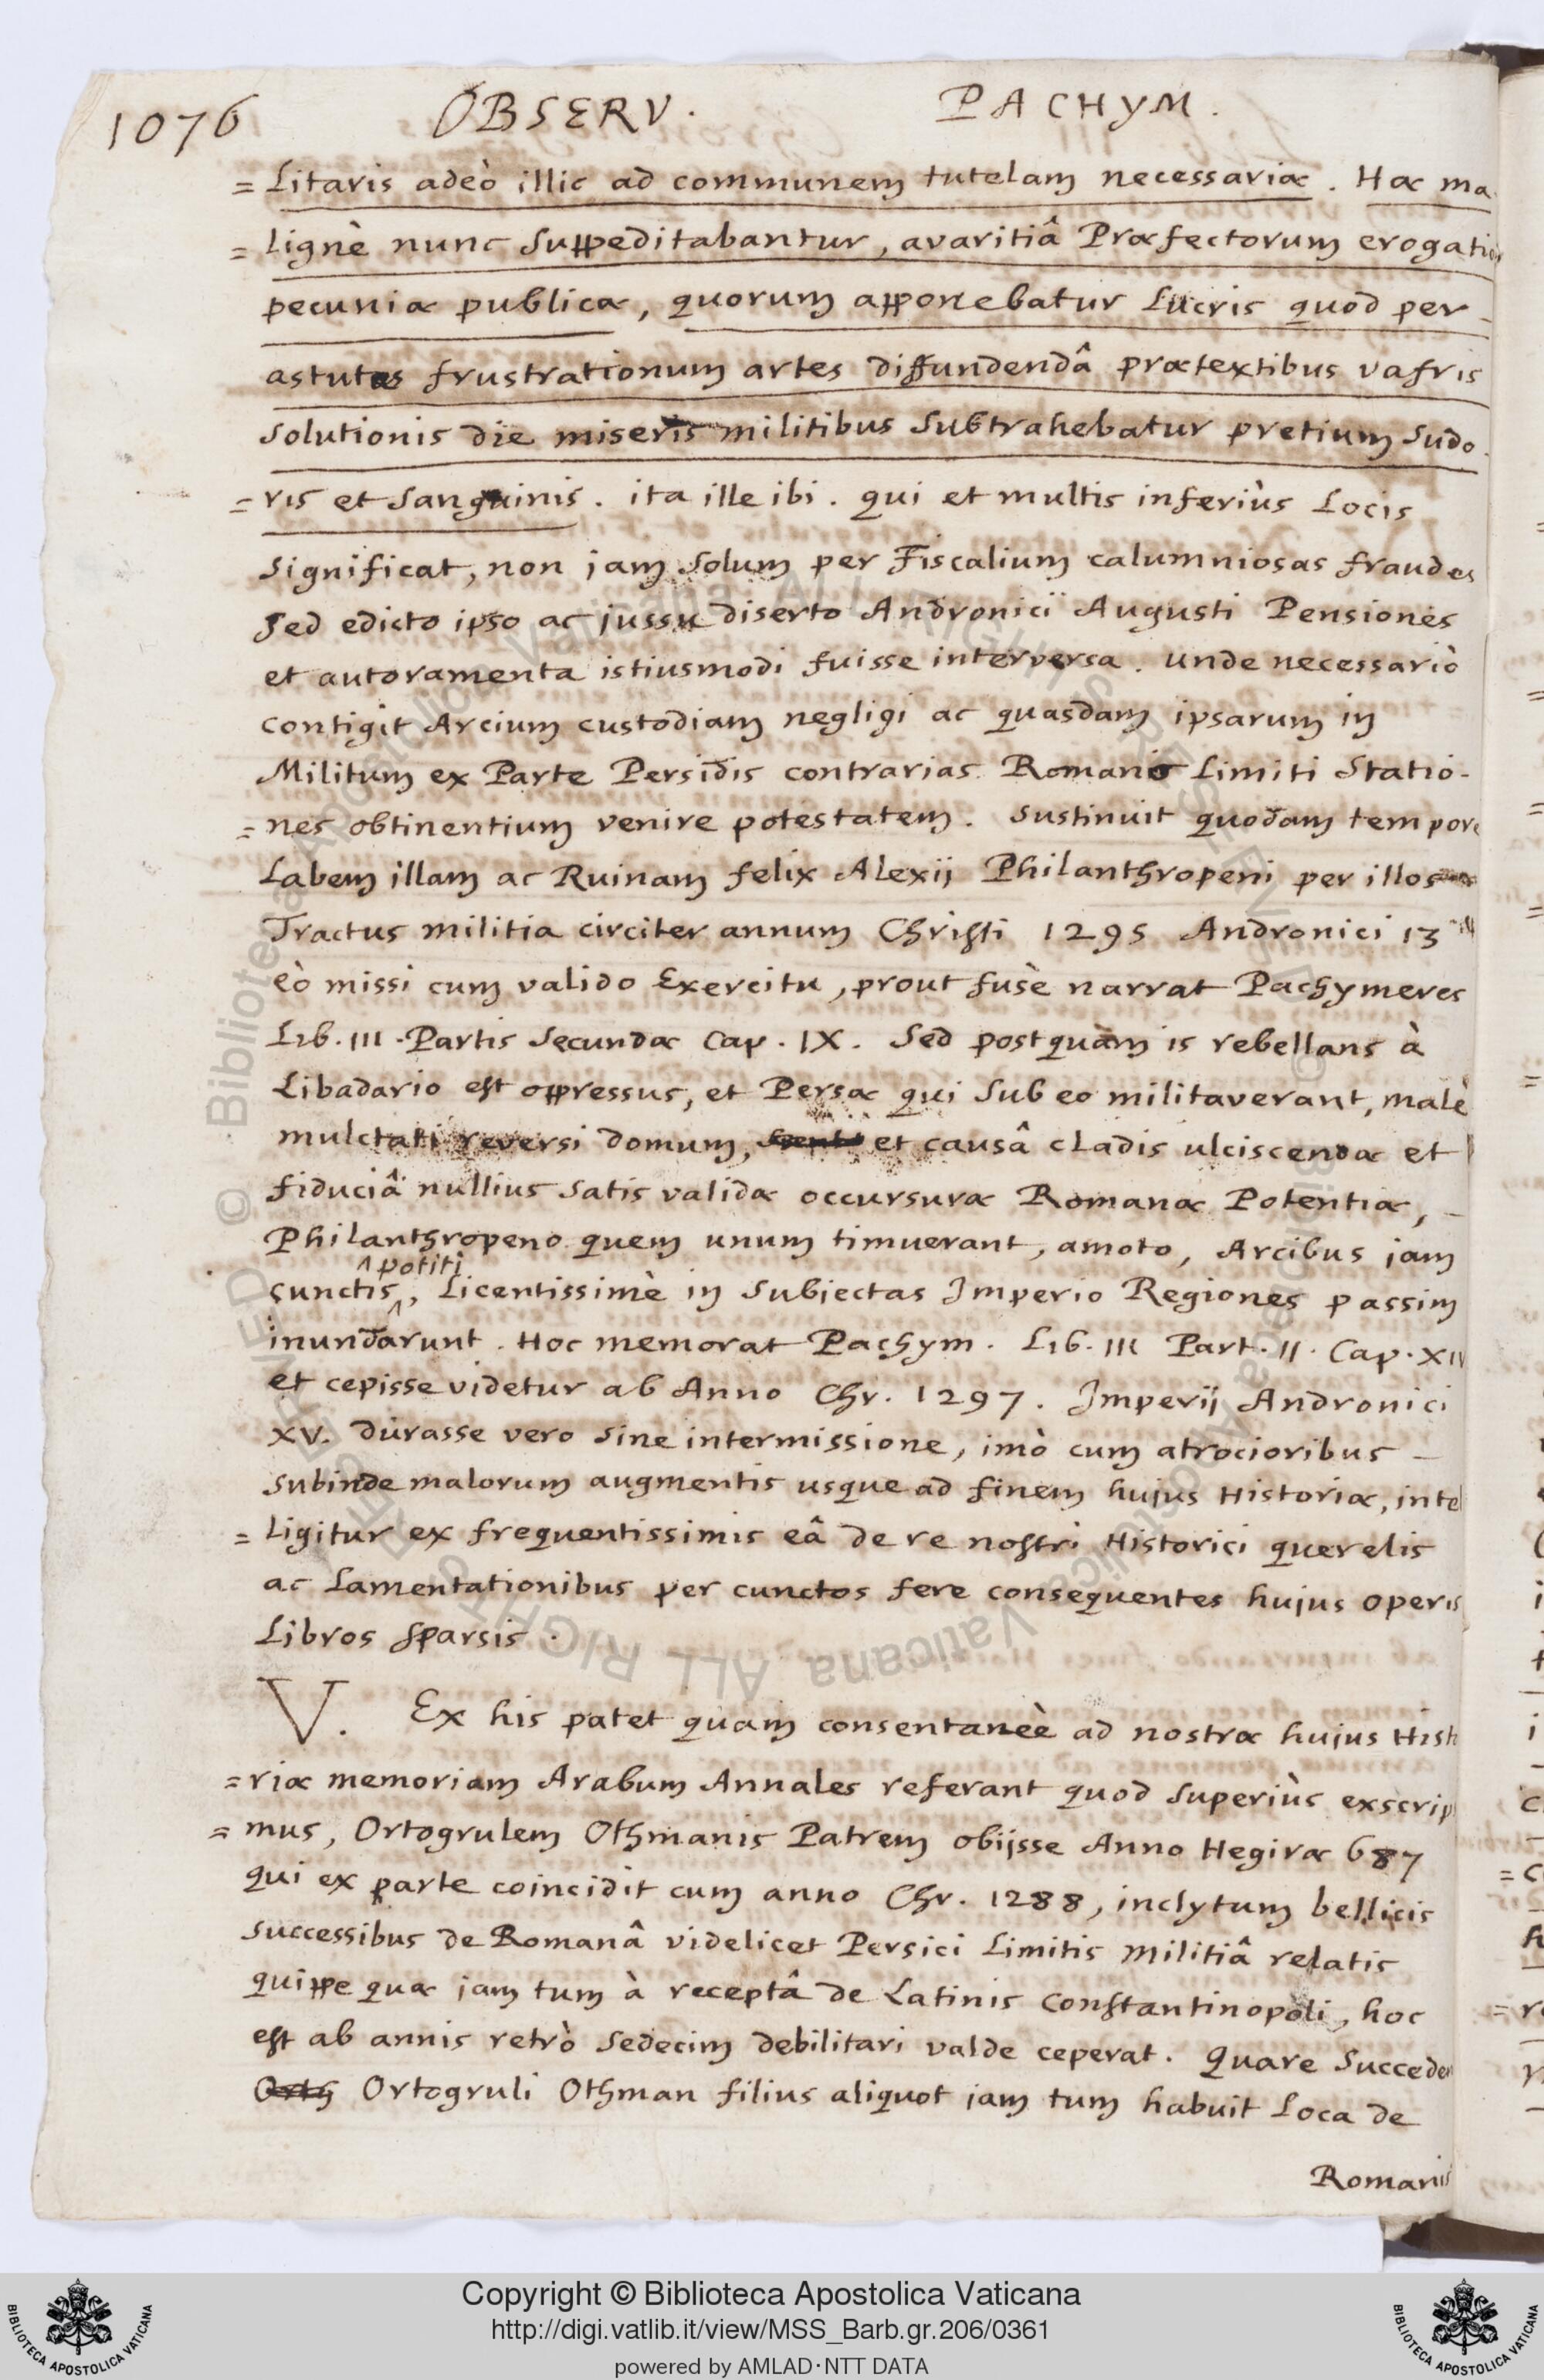 1076 OBSERV. PACHYM.
= litaris adeò illic ad communem tutelam necessariæ. Hæ ma
= lignè nunc suppeditabantur, avaritiâ Præfectorum erogatio
pecuniæ publicæ, quorum apponebatur Lucris quod per -
astutas frustrationum artes diffundendâ prætextibus vafris
solutionis die miseris militibus subtrahebatur pretium sudo
= ris et sanguinis. ita ille ibi. qui et multis inferiùs Locis
significat, non jam solum per Fiscalium calumniosas fraudes
sed edicto ipso ac jussu diserto Andronici Augusti Pensiones
et autoramenta istiusmodi fuisse interversa. unde necessariò
contigit Arcium custodiam negligi ac quasdam ipsarum in
Militum ex Parte Persidis contrarias Romano Limiti Statio-
= nes obtinentium venire potestatem. sustinuit quodam tempore
Labem illam ac Ruinam felix Alexij Philanthropeni per illos
Tractus militia circiter annum Christi 1295 Andronici 13
eò missi cum valido Exercitu, prout fusè narrat Pachymeres
Lib. III. Partis Secundæ Cap. IX. Sed postquàm is rebellans à
Libadario est oppressus, et Persæ qui sub eo militaverant, malè
mulctati reversi domum, et causâ cladis ulciscendæ et
fiduciâ nullius satis validæ occursuræ Romanæ Potentiæ, -
Philanthropeno quem unum timuerant, amoto, Arcibus jam
^ potiti
cunctis^, Licentissimè in subjectas Imperio Regiones passim
inundarunt. Hoc memorat Pachym. Lib. III Part. II. Cap. XIV
et cepisse videtur ab Anno Chr. 1297. Imperij Andronici
XV. durasse vero sine intermissione, imò cum atrocioribus -
subinde malorum augmentis usque ad finem hujus Historiæ, intel
= ligitur ex frequentissimis eâ de re nostri Historici querelis
ac Lamentationibus per cunctos fere consequentes hujus operis
Libros sparsis.
V. Ex his patet quam consentaneè ad nostræ hujus Histo
= riæ memoriam Arabum Annales referant quod superiùs exscrip
= mus, Ortogrulem Othmanis Patrem obijsse Anno Hegiræ 687
qui ex parte coincidit cum anno Chr. 1288, inclytum bellicis
successibus de Romanâ videlicet Persici Limitis militiâ relatis
quippe quæ jam tum à receptâ de Latinis Constantinopoli, hoc
est ab annis retrò sedecim debilitari valde ceperat. Quare succeden
Ortogruli Othman filius aliquot jam tum habuit Loca de
Romanis
Copyright © Biblioteca Apostolica Vaticana
http://digi.vatlib.it/view/MSS_Barb.gr.206/0361
powered by AMLAD·NTT DATA
BIBLIOTECA APOSTOLICA VATICANA
BIBLIOTECA APOSTOLICA VATICANA